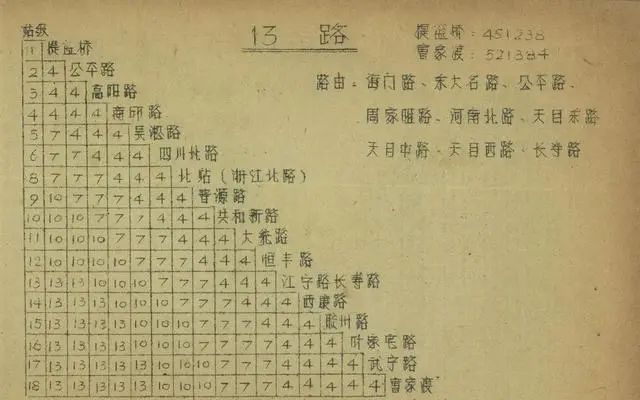 站级
13 路
提篮桥:451238
曹家渡:521384
路由:海门路、东大名路、公平路、
周家咀路、河南北路、天目东路
天目中路、天目西路、长寿路
1 提篮桥
2 4 公平路
3 4 4 高阳路
4 4 4 4 商邱路
5 7 4 4 4 吴淞路
6 7 7 4 4 4 四川北路
8 7 7 7 4 4 4 北站(浙江北路)
9 10 7 7 7 4 4 4 晋源路
10 10 10 7 7 7 4 4 4 共和新路
11 10 10 10 7 7 7 4 4 4 大统路
12 10 10 10 10 7 7 7 4 4 4 恒丰路
13 13 13 10 10 10 7 7 7 4 4 4 江宁路长寿路
14 13 13 13 10 10 10 7 7 7 4 4 4 西康路
15 13 13 13 13 10 10 10 7 7 7 4 4 4 胶州路
16 13 13 13 13 13 10 10 10 7 7 7 4 4 4 叶家宅路
17 13 13 13 13 13 10 10 10 7 7 7 4 4 4 4 武宁路
18 13 13 13 13 13 10 10 10 7 7 7 4 4 4 4 4 曹家渡